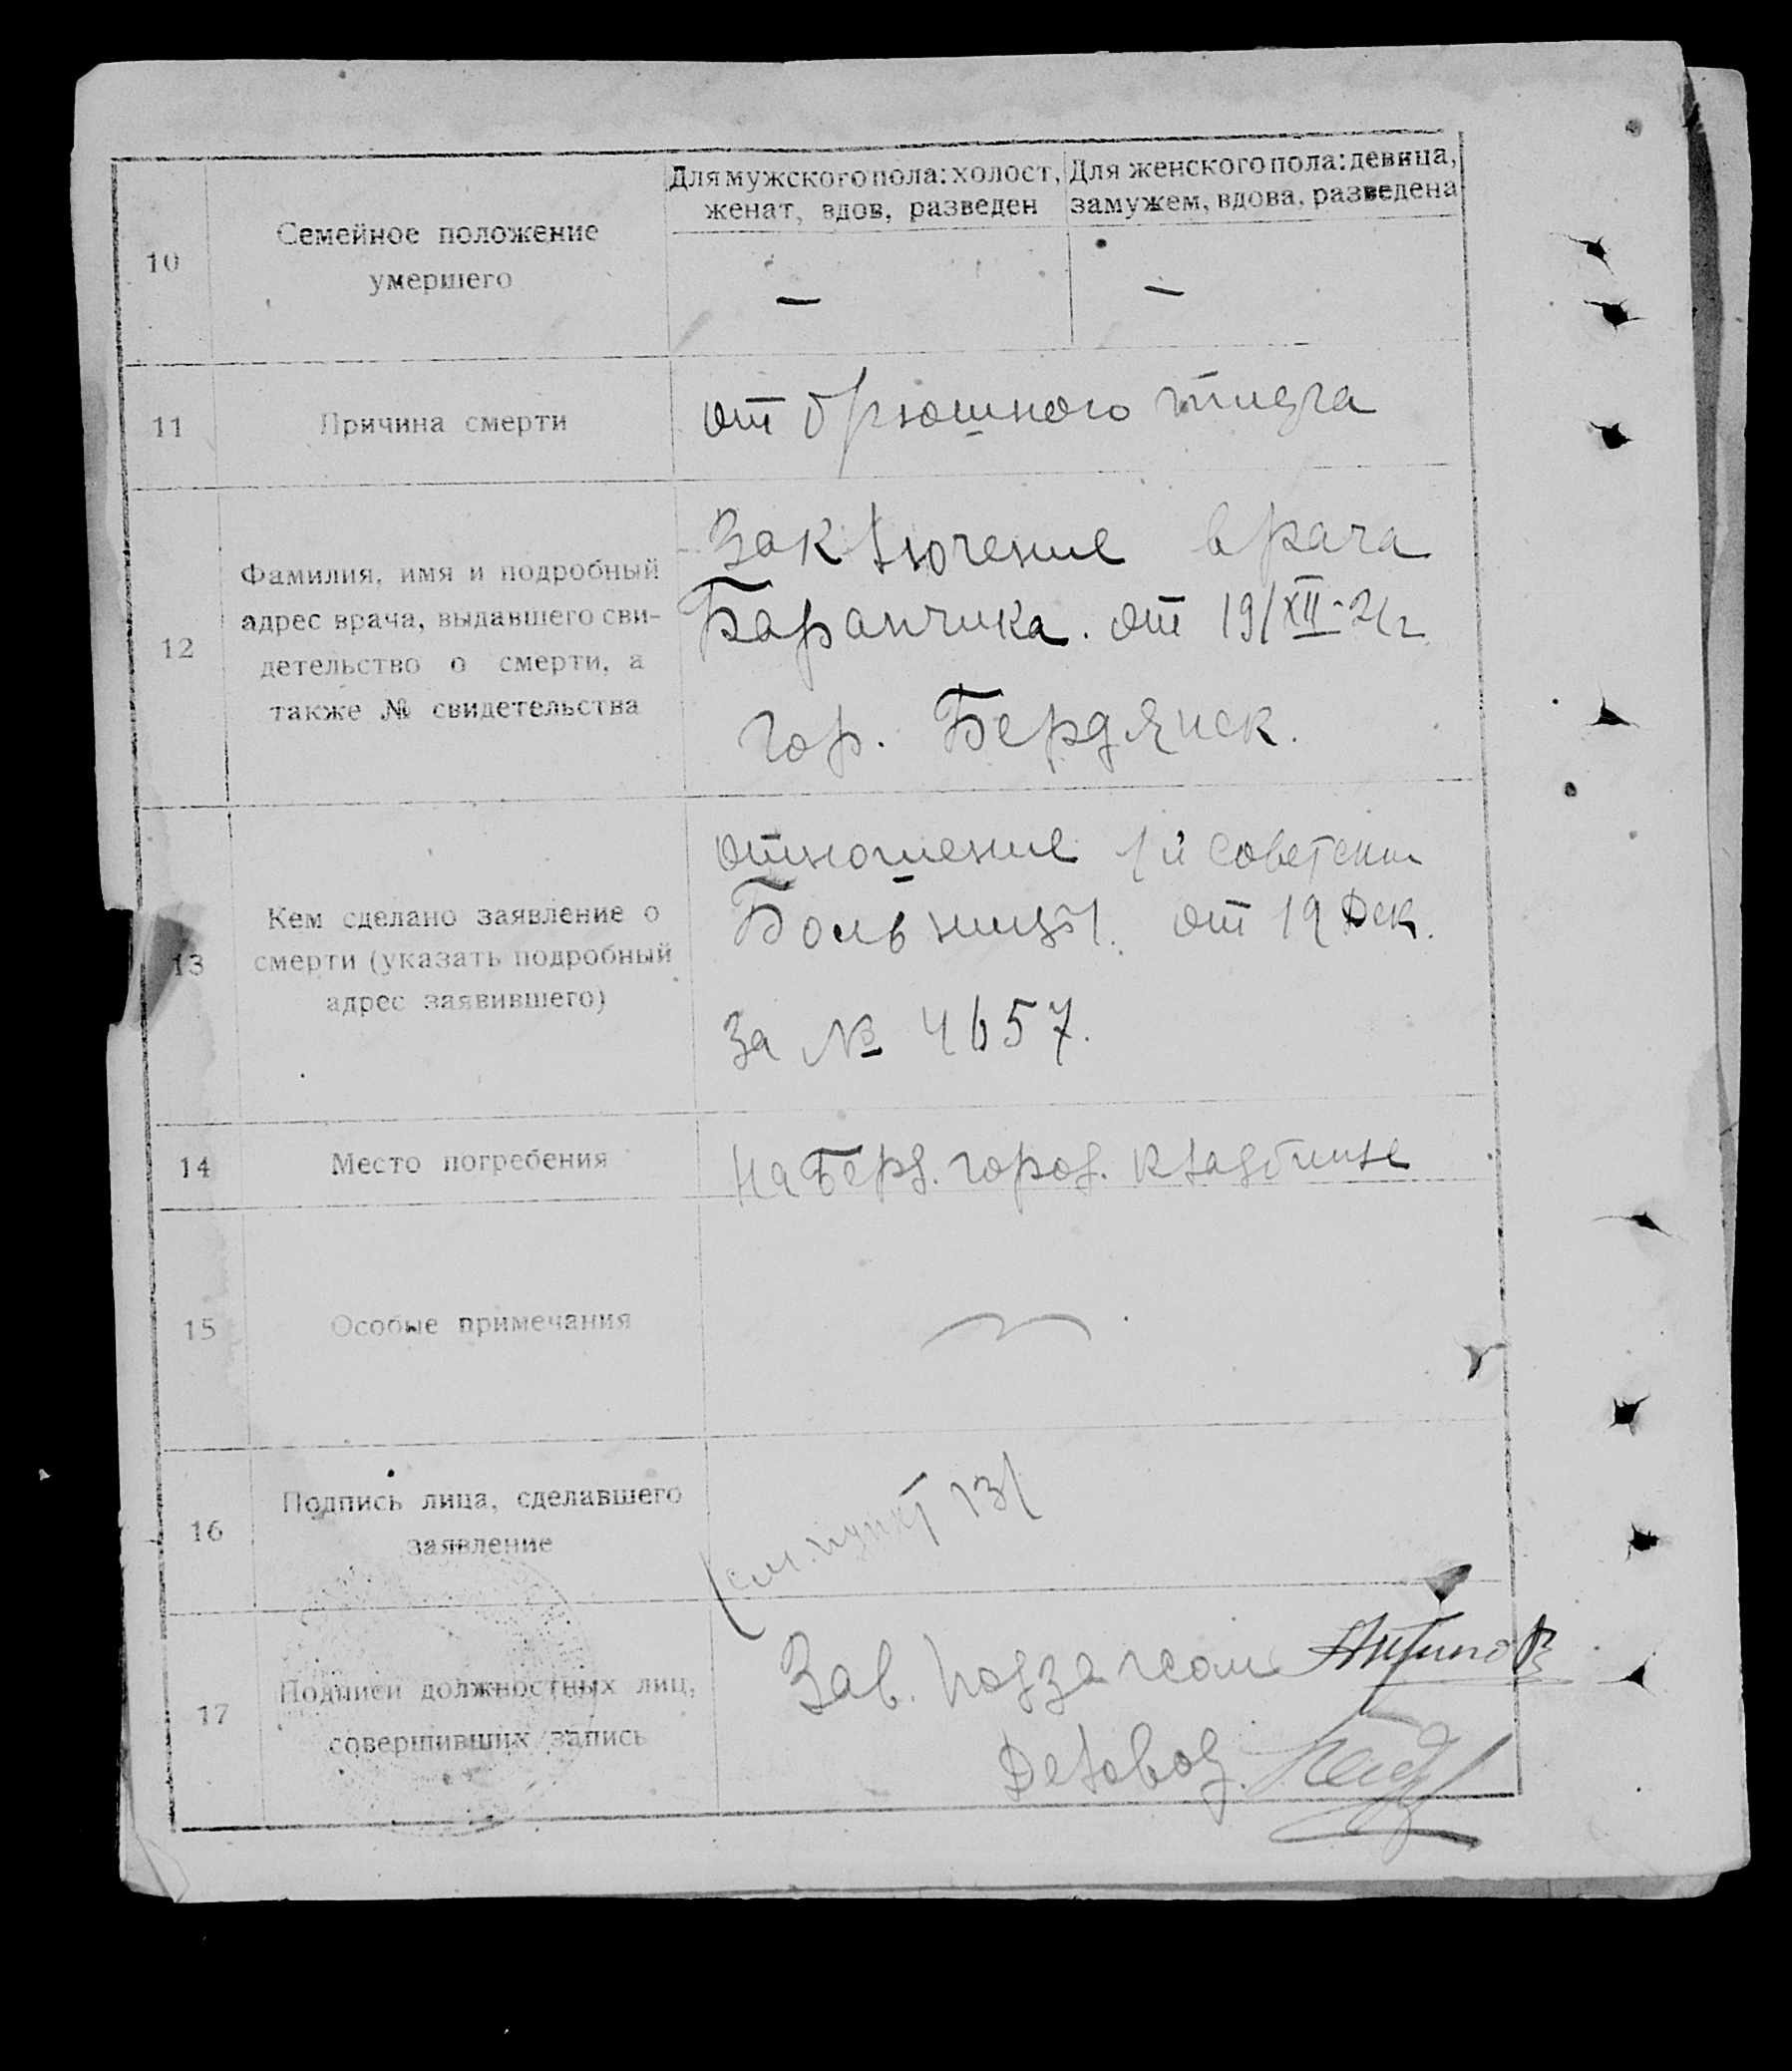 Для мужского пола: холост, женат, вдов, разведен
Для женского пола: девица, замужем, вдова, разведена
10
Семейное положение
умершего
— —
11
Причина смерти
от брюшного тифа
12
Фамилия, имя и подробный
адрес врача, выдавшего сви-
детельство о смерти, а
также № свидетельства
Заключение врача
Баранчика. от 19/XII-21 г.
гор. Бердянск.
13
Кем сделано заявление о
смерти (указать подробный
адрес заявившего)
отношение 1й советск
Больницы. от 19 Дек.
За № 4657.
14
Место погребения
На Берд. город. кладбище
15
Особые примечания
16
Подпись лица, сделавшего
заявление
(см. пункт 13/
17
Подписи должностных лиц,
совершивших запись
Зав. подзагсом
Деловод.